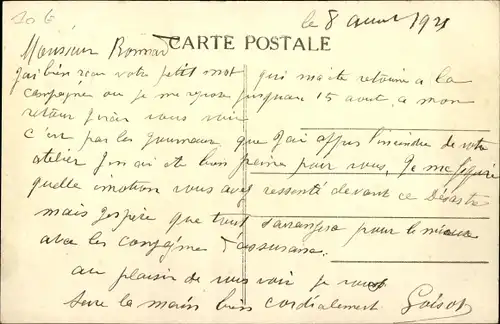 10 €
le 8 aout 1921
CARTE POSTALE
Monsieur Bonnard
J'ai bien recu votre petit mot qui m'a ete retourné a la
campagne ou je me repose jusquau 15 aout, a mon
retour j'irai vous voir
c'est par les journeaux que j'ai appris l'incendie de votre
atelier j'en ai ete bien peinné pour vous, Je me figure
quelle emotion vous avez ressenti devant ce désastre
mais j'espère que tout s'arrangera pour le mieux
avec les compagnies d'assurance.
au plaisir de vous voir je vous
serre la main bien cordialement